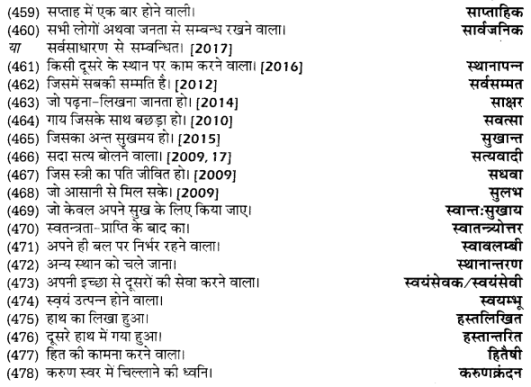 (459) सप्ताह में एक बार होने वाली। साप्ताहिक
(460) सभी लोगों अथवा जनता से सम्बन्ध रखने वाला। सार्वजनिक
या सर्वसाधारण से सम्बन्धित। [2017]
(461) किसी दूसरे के स्थान पर काम करने वाला। [2016] स्थानापन्न
(462) जिसमें सबकी सम्मति है। [2012] सर्वसम्मत
(463) जो पढ़ना-लिखना जानता हो। [2014] साक्षर
(464) गाय जिसके साथ बछड़ा हो। [2010] सवत्सा
(465) जिसका अन्त सुखमय हो। [2015] सुखान्त
(466) सदा सत्य बोलने वाला। [2009, 17] सत्यवादी
(467) जिस स्त्री का पति जीवित हो। [2009] सधवा
(468) जो आसानी से मिल सके। [2009] सुलभ
(469) जो केवल अपने सुख के लिए किया जाए। स्वान्तःसुखाय
(470) स्वतन्त्रता-प्राप्ति के बाद का। स्वातन्त्र्योत्तर
(471) अपने ही बल पर निर्भर रहने वाला। स्वावलम्बी
(472) अन्य स्थान को चले जाना। स्थानान्तरण
(473) अपनी इच्छा से दूसरों की सेवा करने वाला। स्वयंसेवक/स्वयंसेवी
(474) स्वयं उत्पन्न होने वाला। स्वयम्भू
(475) हाथ का लिखा हुआ। हस्तलिखित
(476) दूसरे हाथ में गया हुआ। हस्तान्तरित
(477) हित की कामना करने वाला। हितैषी
(478) करुण स्वर में चिल्लाने की ध्वनि। करुणक्रंदन